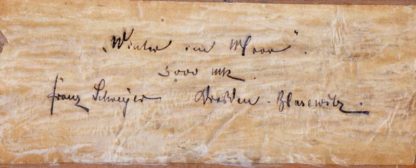 „Winter im Moor“.
3000 Mk.
Franz Schreyer Dresden-Blasewitz.